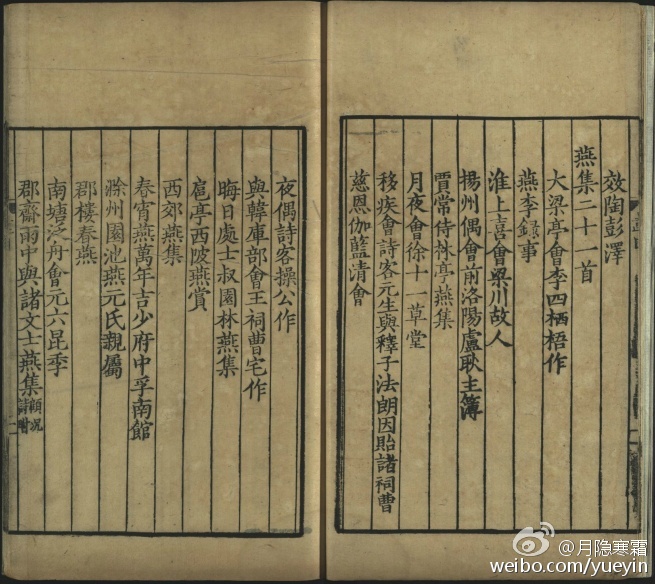 效陶彭澤
燕集二十一首
大梁亭會李四栖梧作
燕李録事
淮上喜會梁川故人
揚州偶會前洛陽盧耿主簿
賈常侍林亭燕集
月夜會徐十一草堂
移疾會詩客元生與釋子法朗因貽諸祠曹
慈恩伽藍清會
夜偶詩客操公作
與韓庫部會王祠曹宅作
晦日處士叔園林燕集
扈亭西陂燕賞
西郊燕集
春宵燕萬年吉少府中孚南館
滁州園池燕元氏親屬
郡樓春燕
南塘泛舟會元六昆季
郡齋雨中與諸文士燕集顧况詩附
@月隐寒霜
weibo.com/yueyin